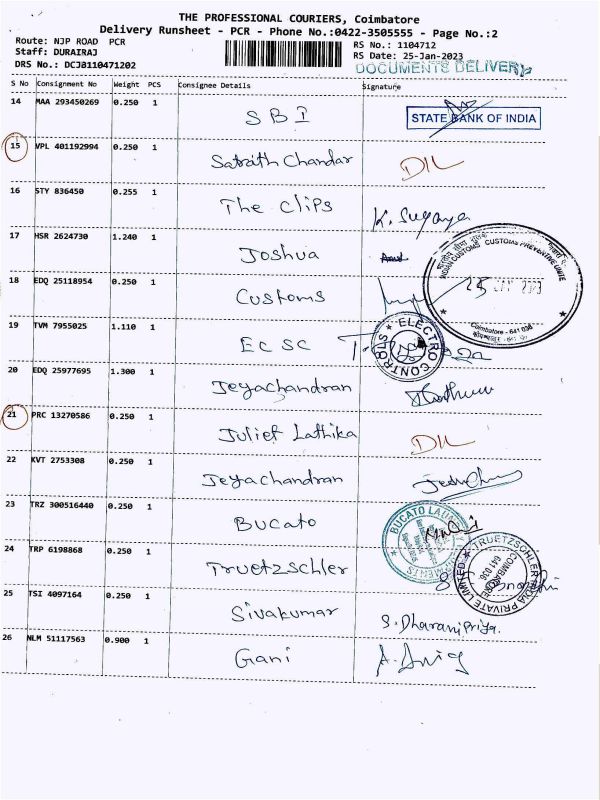 THE PROFESSIONAL COURIERS, Coimbatore
Delivery Runsheet - PCR - Phone No.:0422-3505555 - Page No.:2
Route: NJP ROAD PCR
Staff: DURAIRAJ
DRS No.: DCJ0110471202
RS No.: 1104712
RS Date: 25-Jan-2023
DOCUMENTS DELIVERY
S No Consignment No Weight PCS Consignee Details Signature
14 MAA 293450269 0.250 1 SBI STATE BANK OF INDIA
15 VPL 401192994 0.250 1 Satrath Chandar DIL
16 STY 836450 0.255 1 The Clips K. Suganya
17 HSR 2624730 1.240 1 Joshua
INDIAN CUSTOMS CUSTOMS PREVENTIVE UNIT
2023
Coimbatore - 641 036
18 EDQ 25118954 0.250 1 Customs
19 TVM 7955025 1.110 1 ECSC
ELECTRO CONTROLS
20 EDQ 25977695 1.300 1 Jeyachandran
21 PRC 13270586 0.250 1 Juliet Lathika DIL
22 KVT 2753308 0.250 1 Jeyachandran
23 TRZ 300516440 0.250 1 Bucato
BUCATO
24 TRP 6198868 0.250 1 Truetzschler
TRUETZSCHLER INDIA PRIVATE LIMITED
COIMBATORE
641 036
25 TSI 4097164 0.250 1 Sivakumar S. Dharanipriya.
26 NLM 51117563 0.900 1 Gani